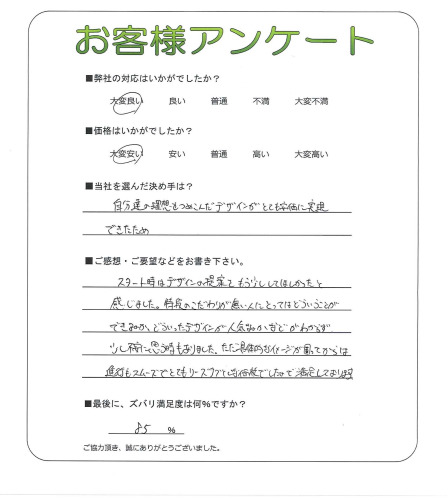 お客様アンケート
■弊社の対応はいかがでしたか？
大変良い 良い 普通 不満 大変不満
■価格はいかがでしたか？
大変安い 安い 普通 高い 大変高い
■当社を選んだ決め手は？
自分達の理想をつめこんだデザインがとても安価に実現
できたため
■ご感想・ご要望などをお書き下さい。
スタート時はデザインの提案をもう少ししてほしかったと
感じました。特段のこだわりが無い人にとってはどういうことが
できるのか、どういったデザインが人気なのかなどがわからず
少し不安に思う時もありました。ただ具体的なイメージが固ってからは
進行もスムーズでとてもリーズナブルな価格でしたので満足しております
■最後に、ズバリ満足度は何％ですか？
85 ％
ご協力頂き、誠にありがとうございました。